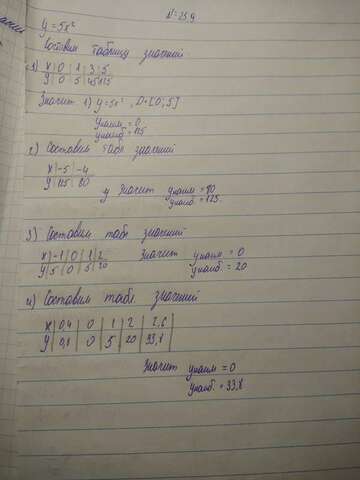 № 259
y = 5x²
Составим таблицу значений
1) x | 0 | 1 | 3 | 5
y | 0 | 5 | 45 | 125
Значит 1) y=5x² , D=[0;5]
yнаим = 0
yнаиб = 125
2) Составим табл значений
x | -5 | -4
y | 125 | 80
y Значит yнаим = 80
yнаиб. = 125
3) Составим табл значений
x | -1 | 0 | 1 | 2 Значит yнаим = 0
y | 5 | 0 | 5 | 20 yнаиб. = 20
4) Составим табл. значений
x | 0,4 | 0 | 1 | 2 | 2,6
y | 0,8 | 0 | 5 | 20 | 33,8
Значит yнаим = 0
yнаиб. = 33,8